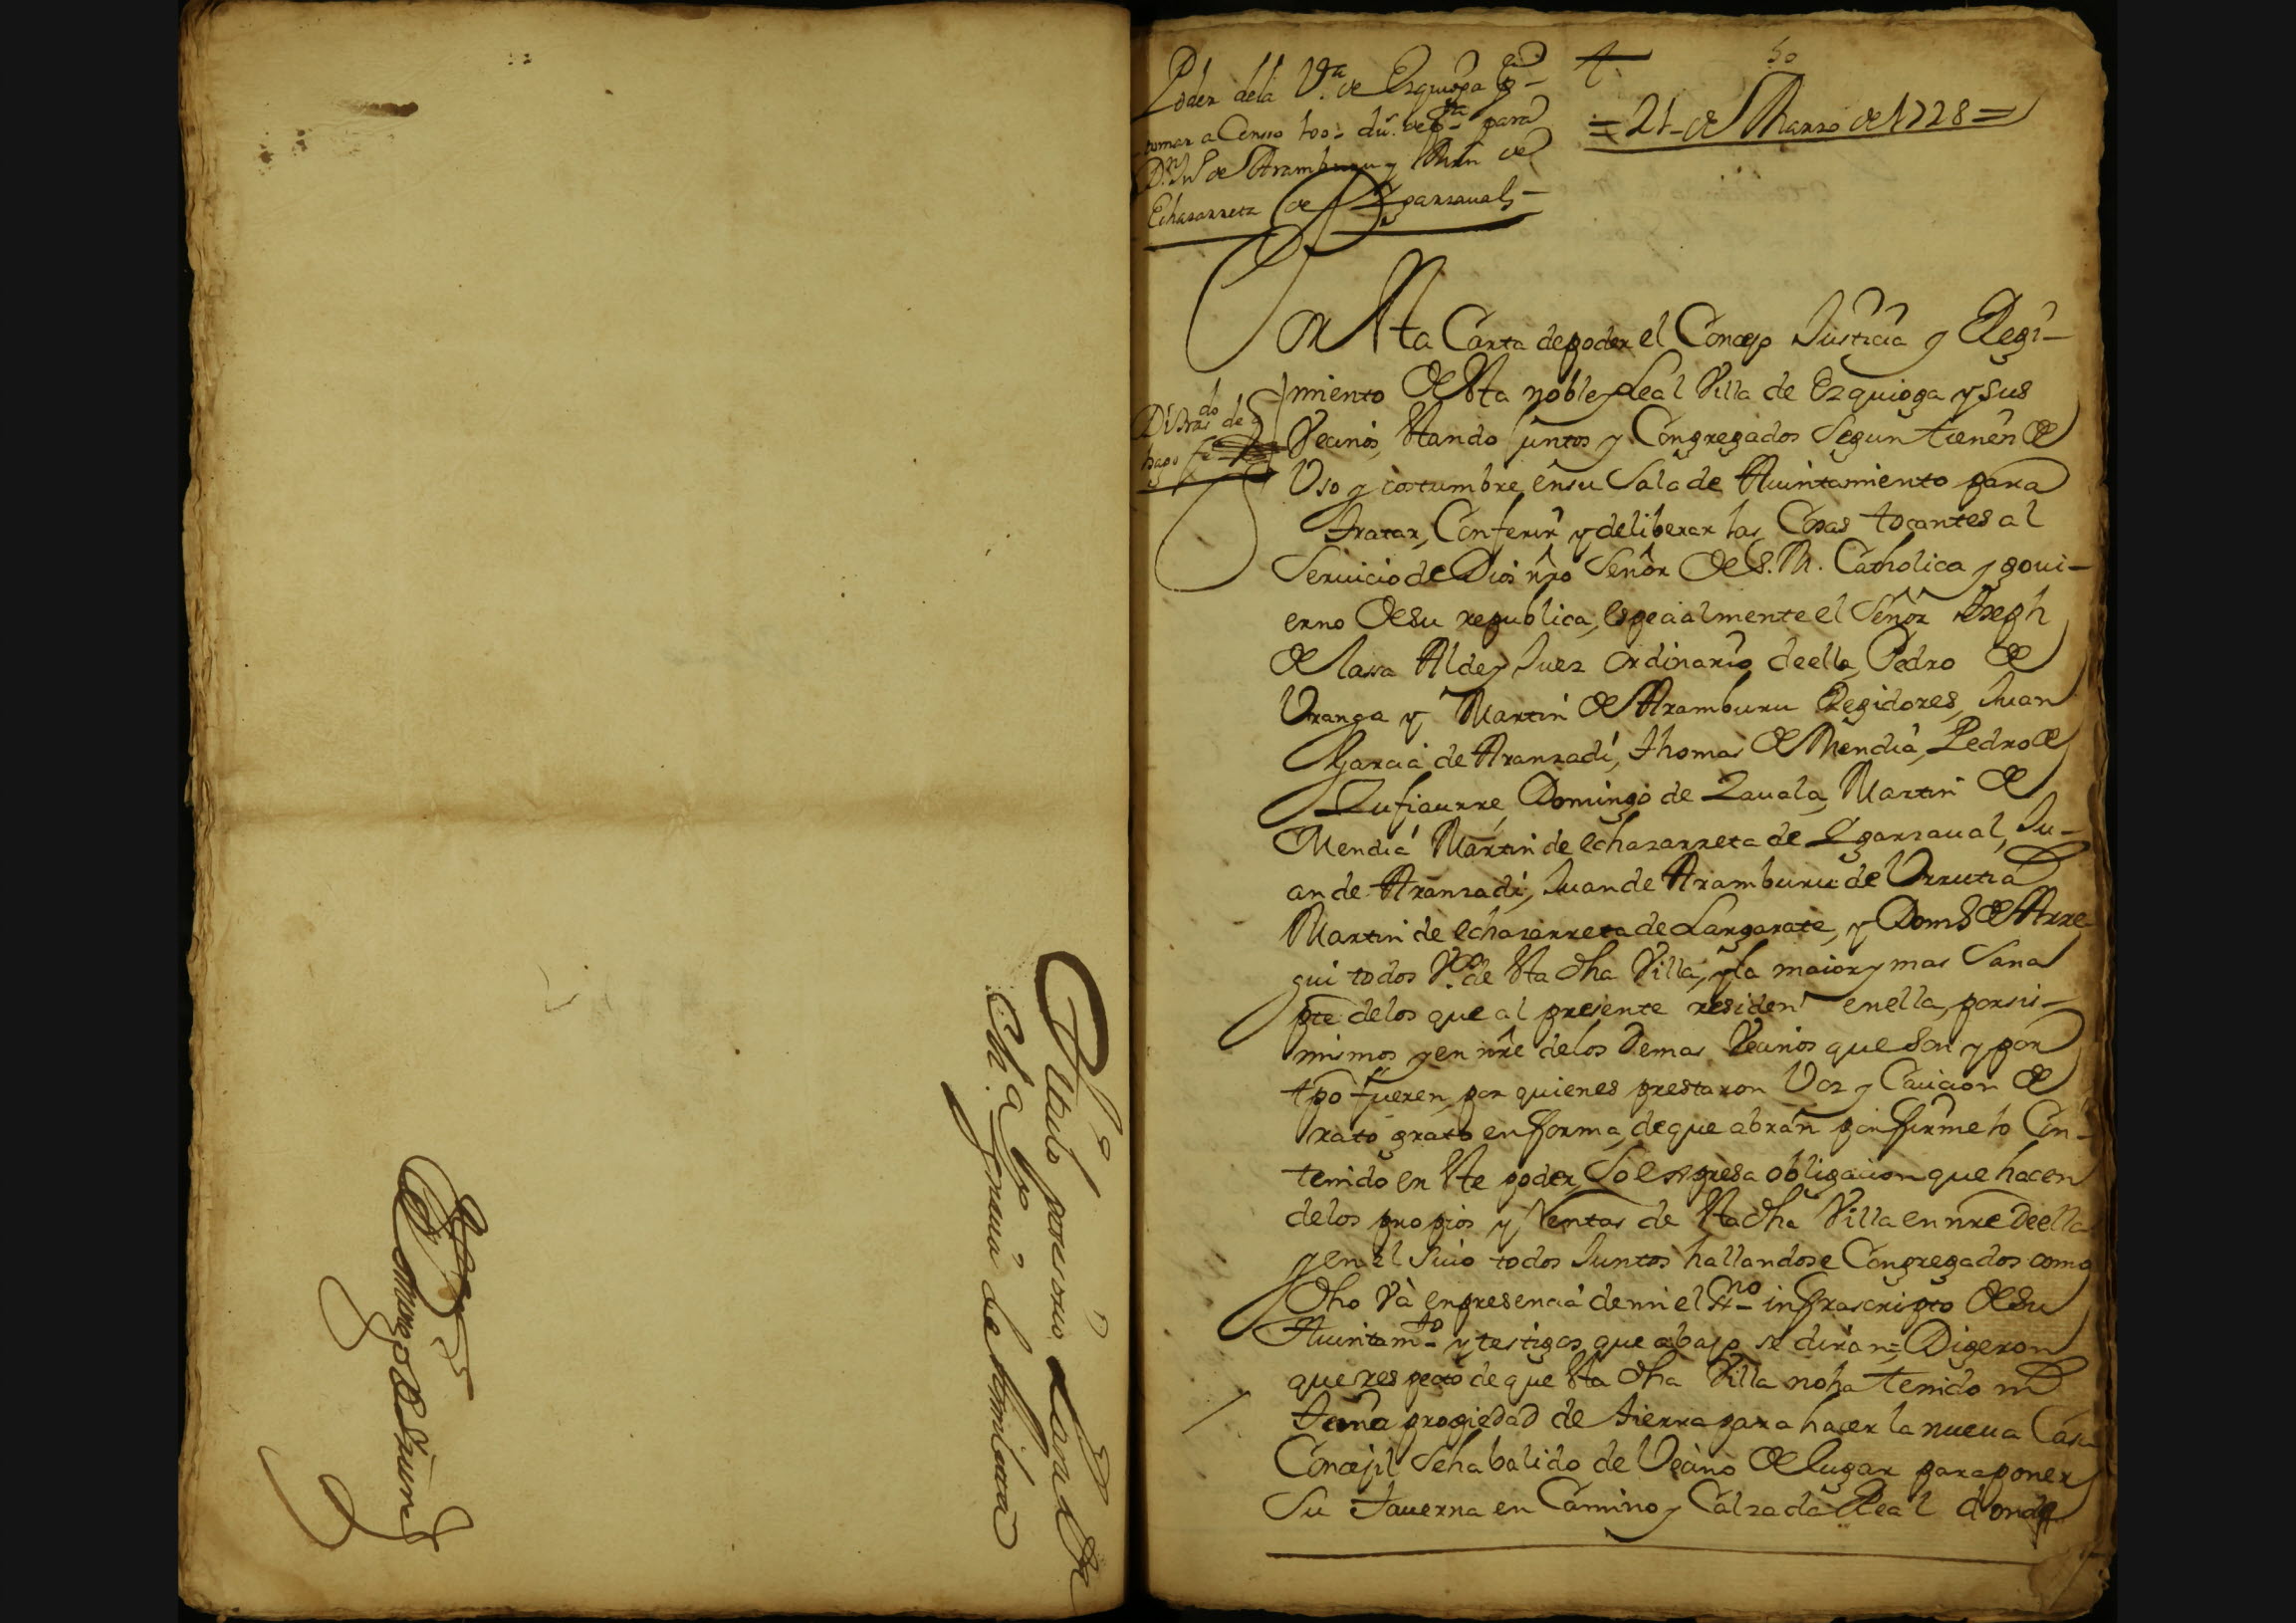 Poder dela V.ª de Ezquioga pª
tomar a Censo 400 du.s de pta para
D.n Jn de Aramburu y Mrn de
Echazarreta de Ygarzaual
50
= 21 de Marzo de 1728 =
Por Esta Carta de poder el Concejo Justicia y Regi-
miento de Esta noble y Leal Villa de Ezquioga y sus
Vecinos, Estando juntos y Congregados Segun tienen de
Uso y costumbre, en su Sala de Auintamiento para
tratar, Conferir y deliberar las Cosas tocantes al
Seruicio de Dios nro Señor de S. M. Catholica y goui-
erno de su republica, Especialmente el Señor Joseph
de lassa Alde y Juez ordinario de ella, Pedro de
Vranga y Martin de Aramburu Regidores, Juan
Garcia de Aranzadi, Thomas de Mendia, Pedro de
Zufiaurre, Domingo de Zauala, Martin de
Mendia Martin de echazarreta de Ygarzaual, Ju-
an de Aranzadi, Juan de Aramburu de Vrrutia
Martin de echazarreta de Largarate, y Domo de Arre
gui todos Vos. de Esta dha Villa, y la maior y mas Sana
pte delos que al presente residen en ella, por sis-
mismos y en nre delos Demas Vecinos que Son y por
tpo fueren, por quienes prestaron Voz y Caucion de
rato grato en forma, de que abran por firme lo Con-
tenido en Este poder, So expresa obligacion que hacen
delos propios y Rentas de Esta dha Villa en nre De ella
y en el Suio todos Juntos hallandose Congregados como
dho Vá en presencia de mi el Essno infrascripto de su
Auintamto y testigos que abajo se diran = Digeron
que respecto de que Esta dha Villa no ha tenido ni
tiene propiedad de tierra para hacer la nueua Casa
Concejil Se ha balido de Vecino de lugar para poner
Su tauerna en Camino y Calzada Real donde
Dis Tras do de
hago fe
Titulo posesorio
Ch.a
Domingo de